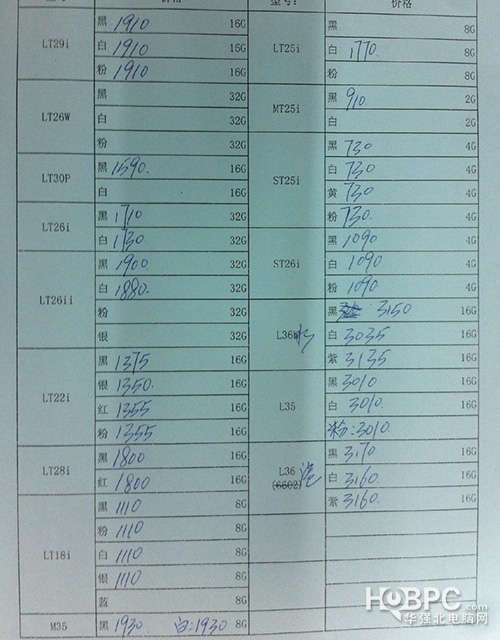 型号: 价格 型号: 价格
LT29i
黑 1910 16G
白 1910 16G
粉 1910 16G
LT26W
黑 32G
白 32G
粉 32G
LT30P
黑 1590. 16G
白 16G
LT26i
黑 1710 32G
白 1730 32G
LT26ii
黑 1900 32G
白 1880. 32G
粉 32G
银 32G
LT22i
黑 1375 16G
银 1350. 16G
红 1355 16G
粉 1355 16G
LT28i
黑 1800 16G
红 1800 16G
LT18i
黑 1110 8G
粉 1110 8G
白 1110 8G
银 1110 8G
蓝 8G
M35
黑 1930 白:1930 8G
LT25i
黑 8G
白 1770 8G
粉 8G
MT25i
黑 910 2G
白 2G
ST25i
黑 730 4G
白 730 4G
黄 730 4G
粉 730. 4G
ST26i
黑 1090 4G
白 1090 4G
粉 1090 4G
L36h
黑 3150 16G
白 3035 16G
紫 3135 16G
L35
黑 3010 16G
白 3010. 16G
粉:3010.
L36 港
(6602)
黑 3170 16G
白 3160. 16G
紫 3160. 16G
HQBPC.com
华强北电脑网